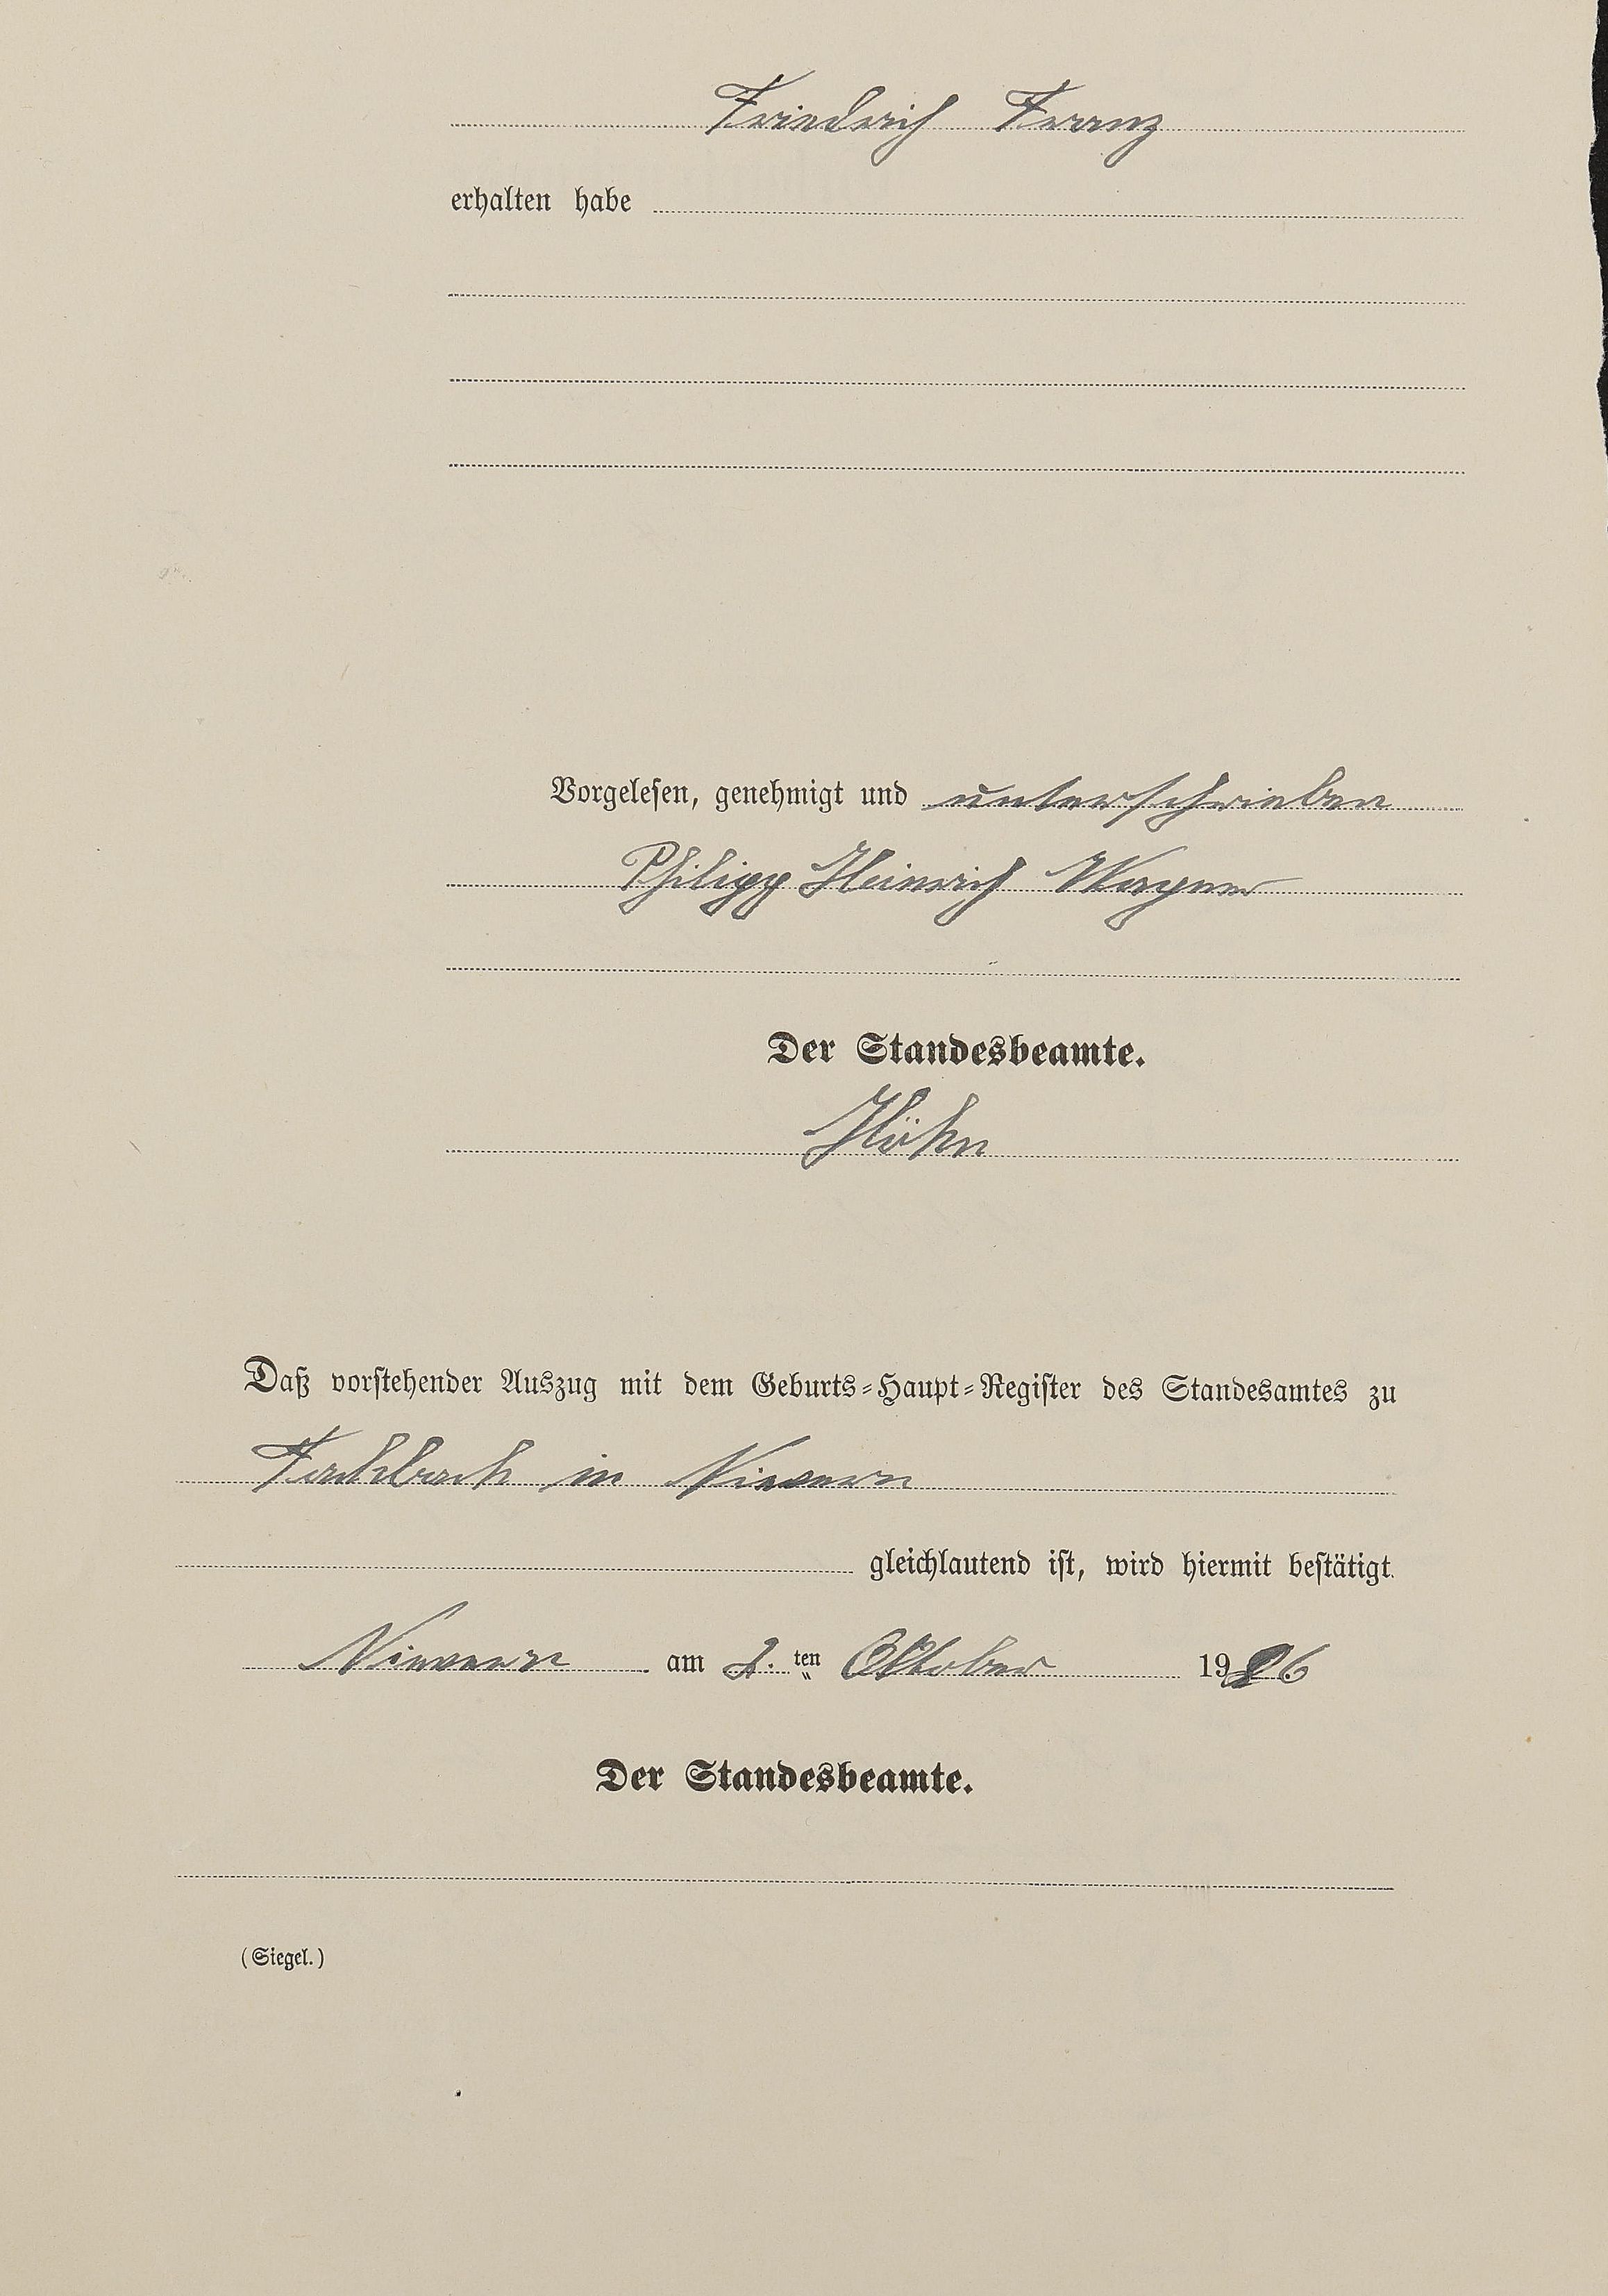 Friedrich Franz
erhalten habe
Vorgelesen, genehmigt und unterschrieben
Philipp Heinrich Wagner
Der Standesbeamte.
Höhn
Daß vorstehender Auszug mit dem Geburts-Haupt-Register des Standesamtes zu
Fachbach in Nievern
gleichlautend ist, wird hiermit bestätigt.
Nievern am 2. ten Oktober 1926
Der Standesbeamte.
(Siegel.)